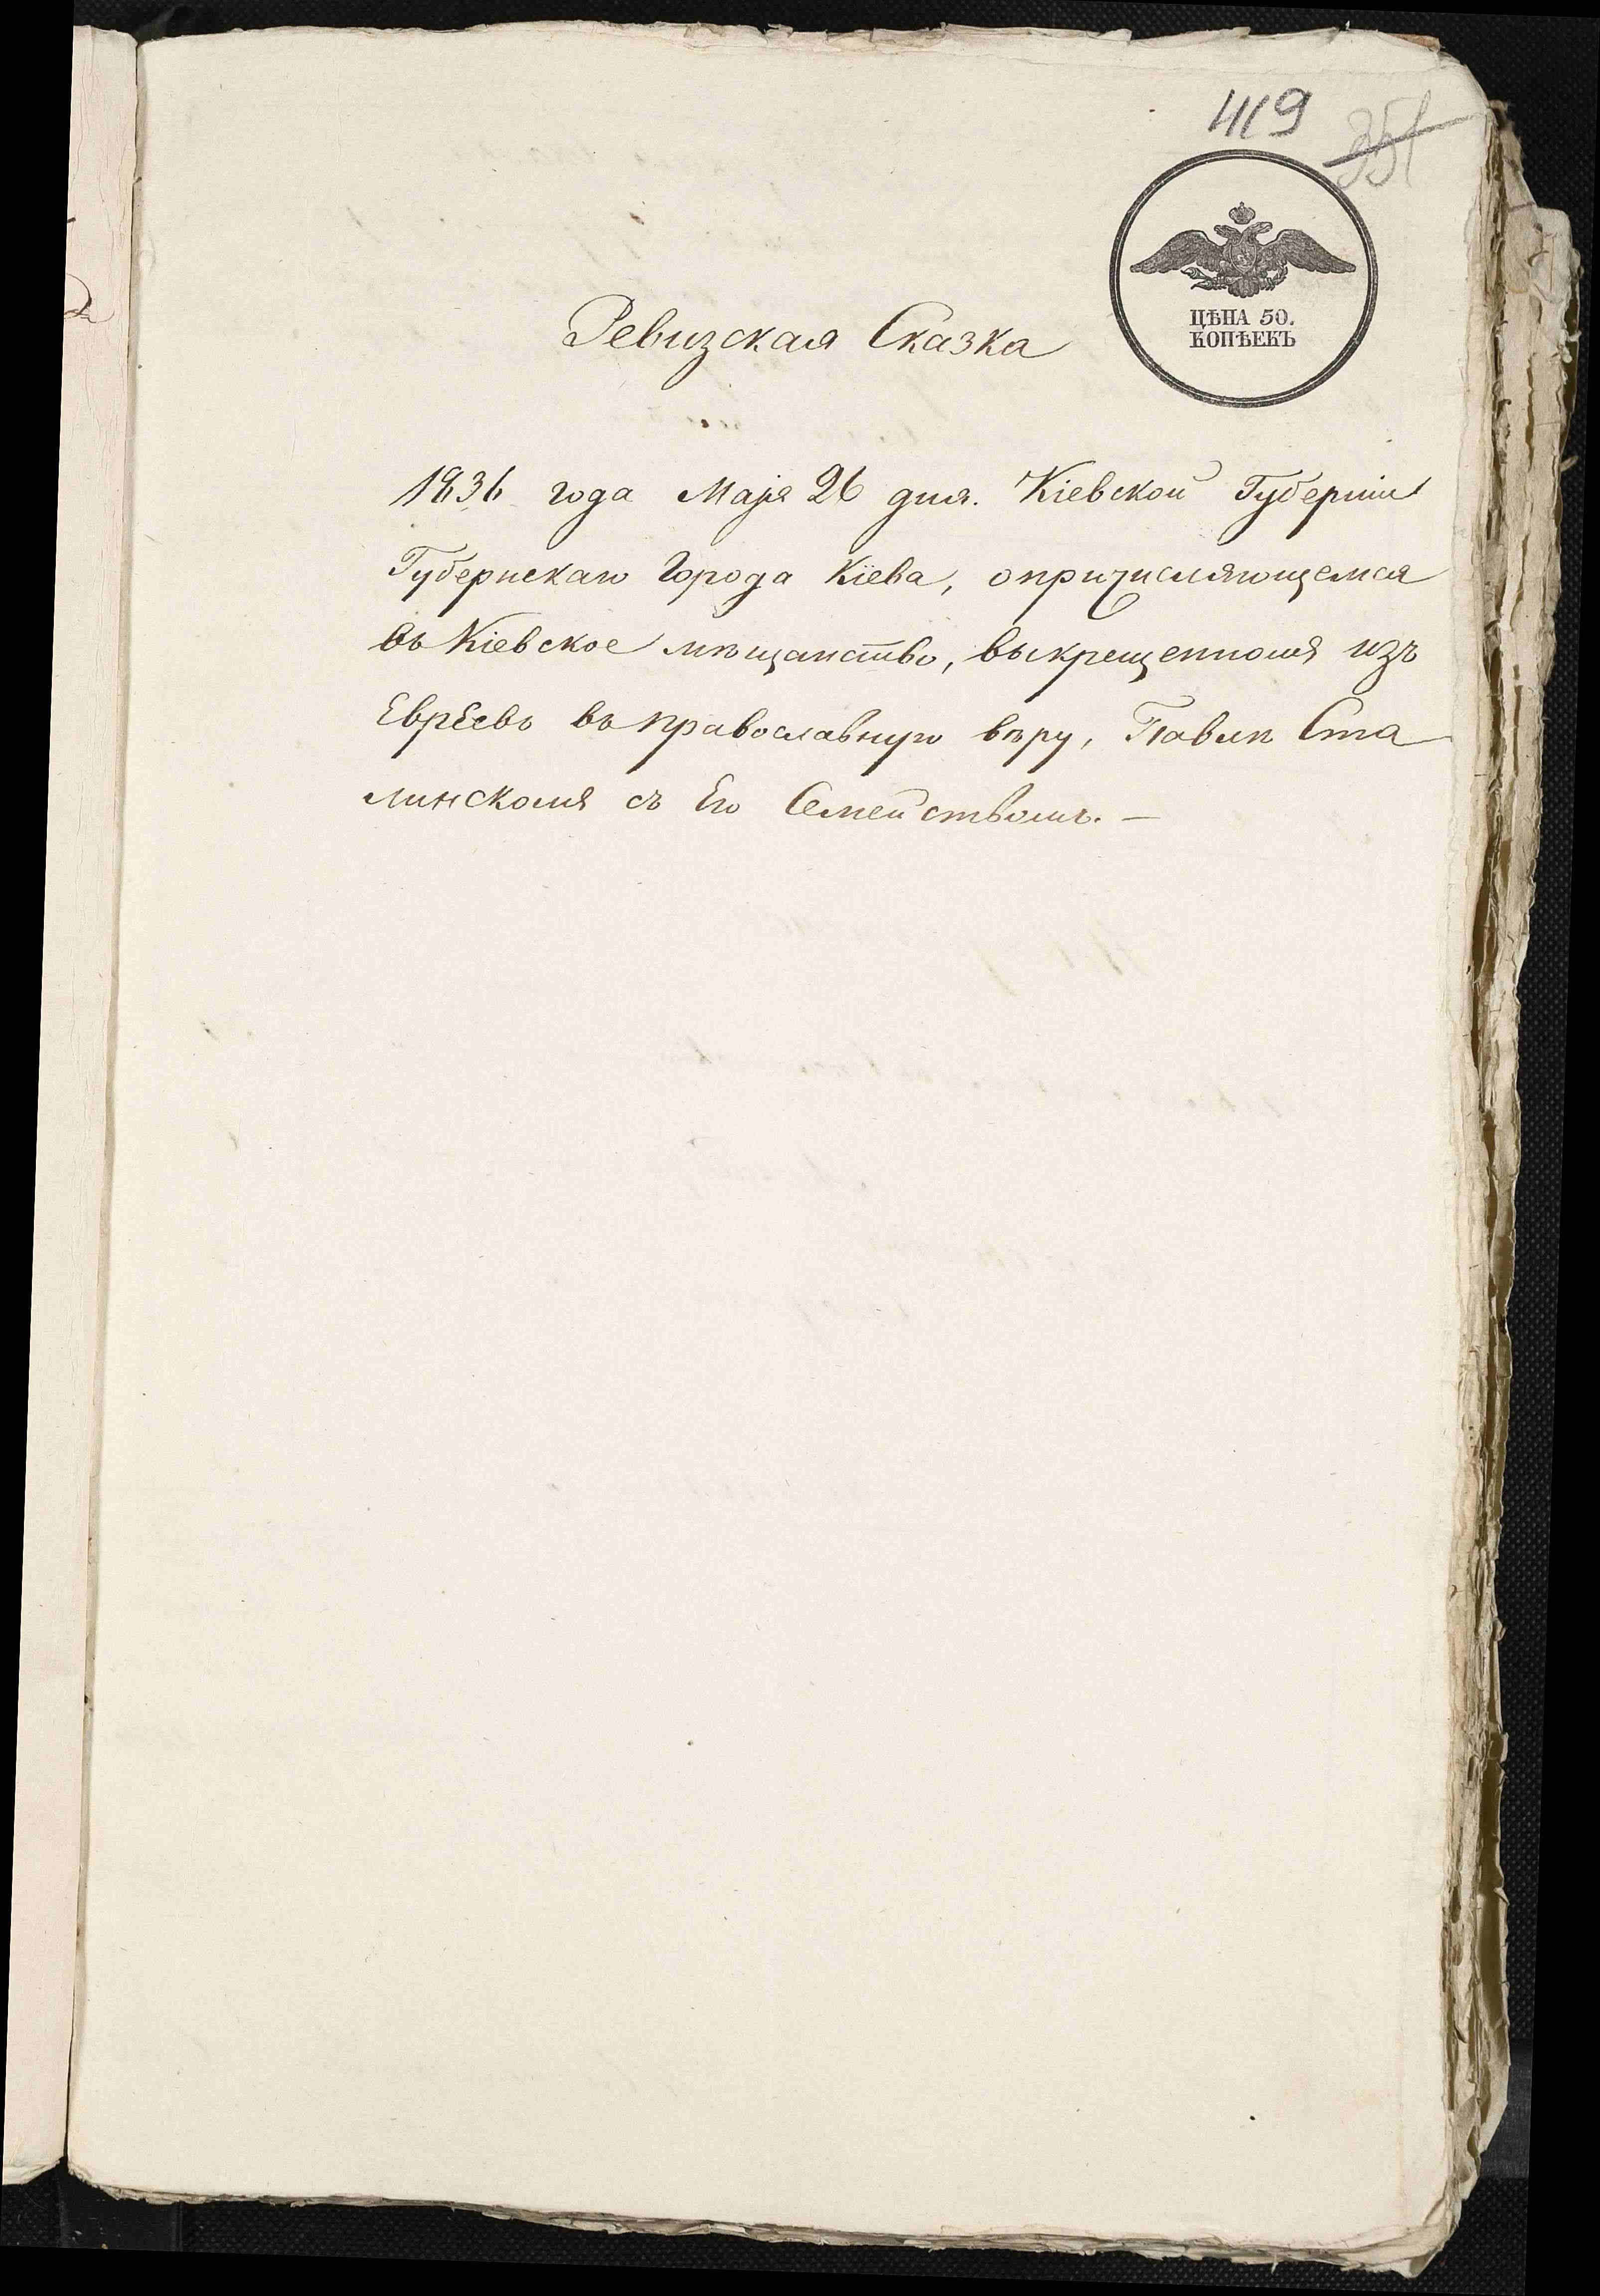 419
351
ЦѢНА 50.
КОПѢЕКЪ
Ревизская Сказка
1836 года Маія 26 дня. Кіевской Губерніи
Губернскаго Города Кіева, о причисляющемся
въ Кіевское мѣщанство, выкрещенномъ изъ
Евреевъ въ православную вѣру, Павлѣ Ста
линскомъ съ Его Семействомъ. —